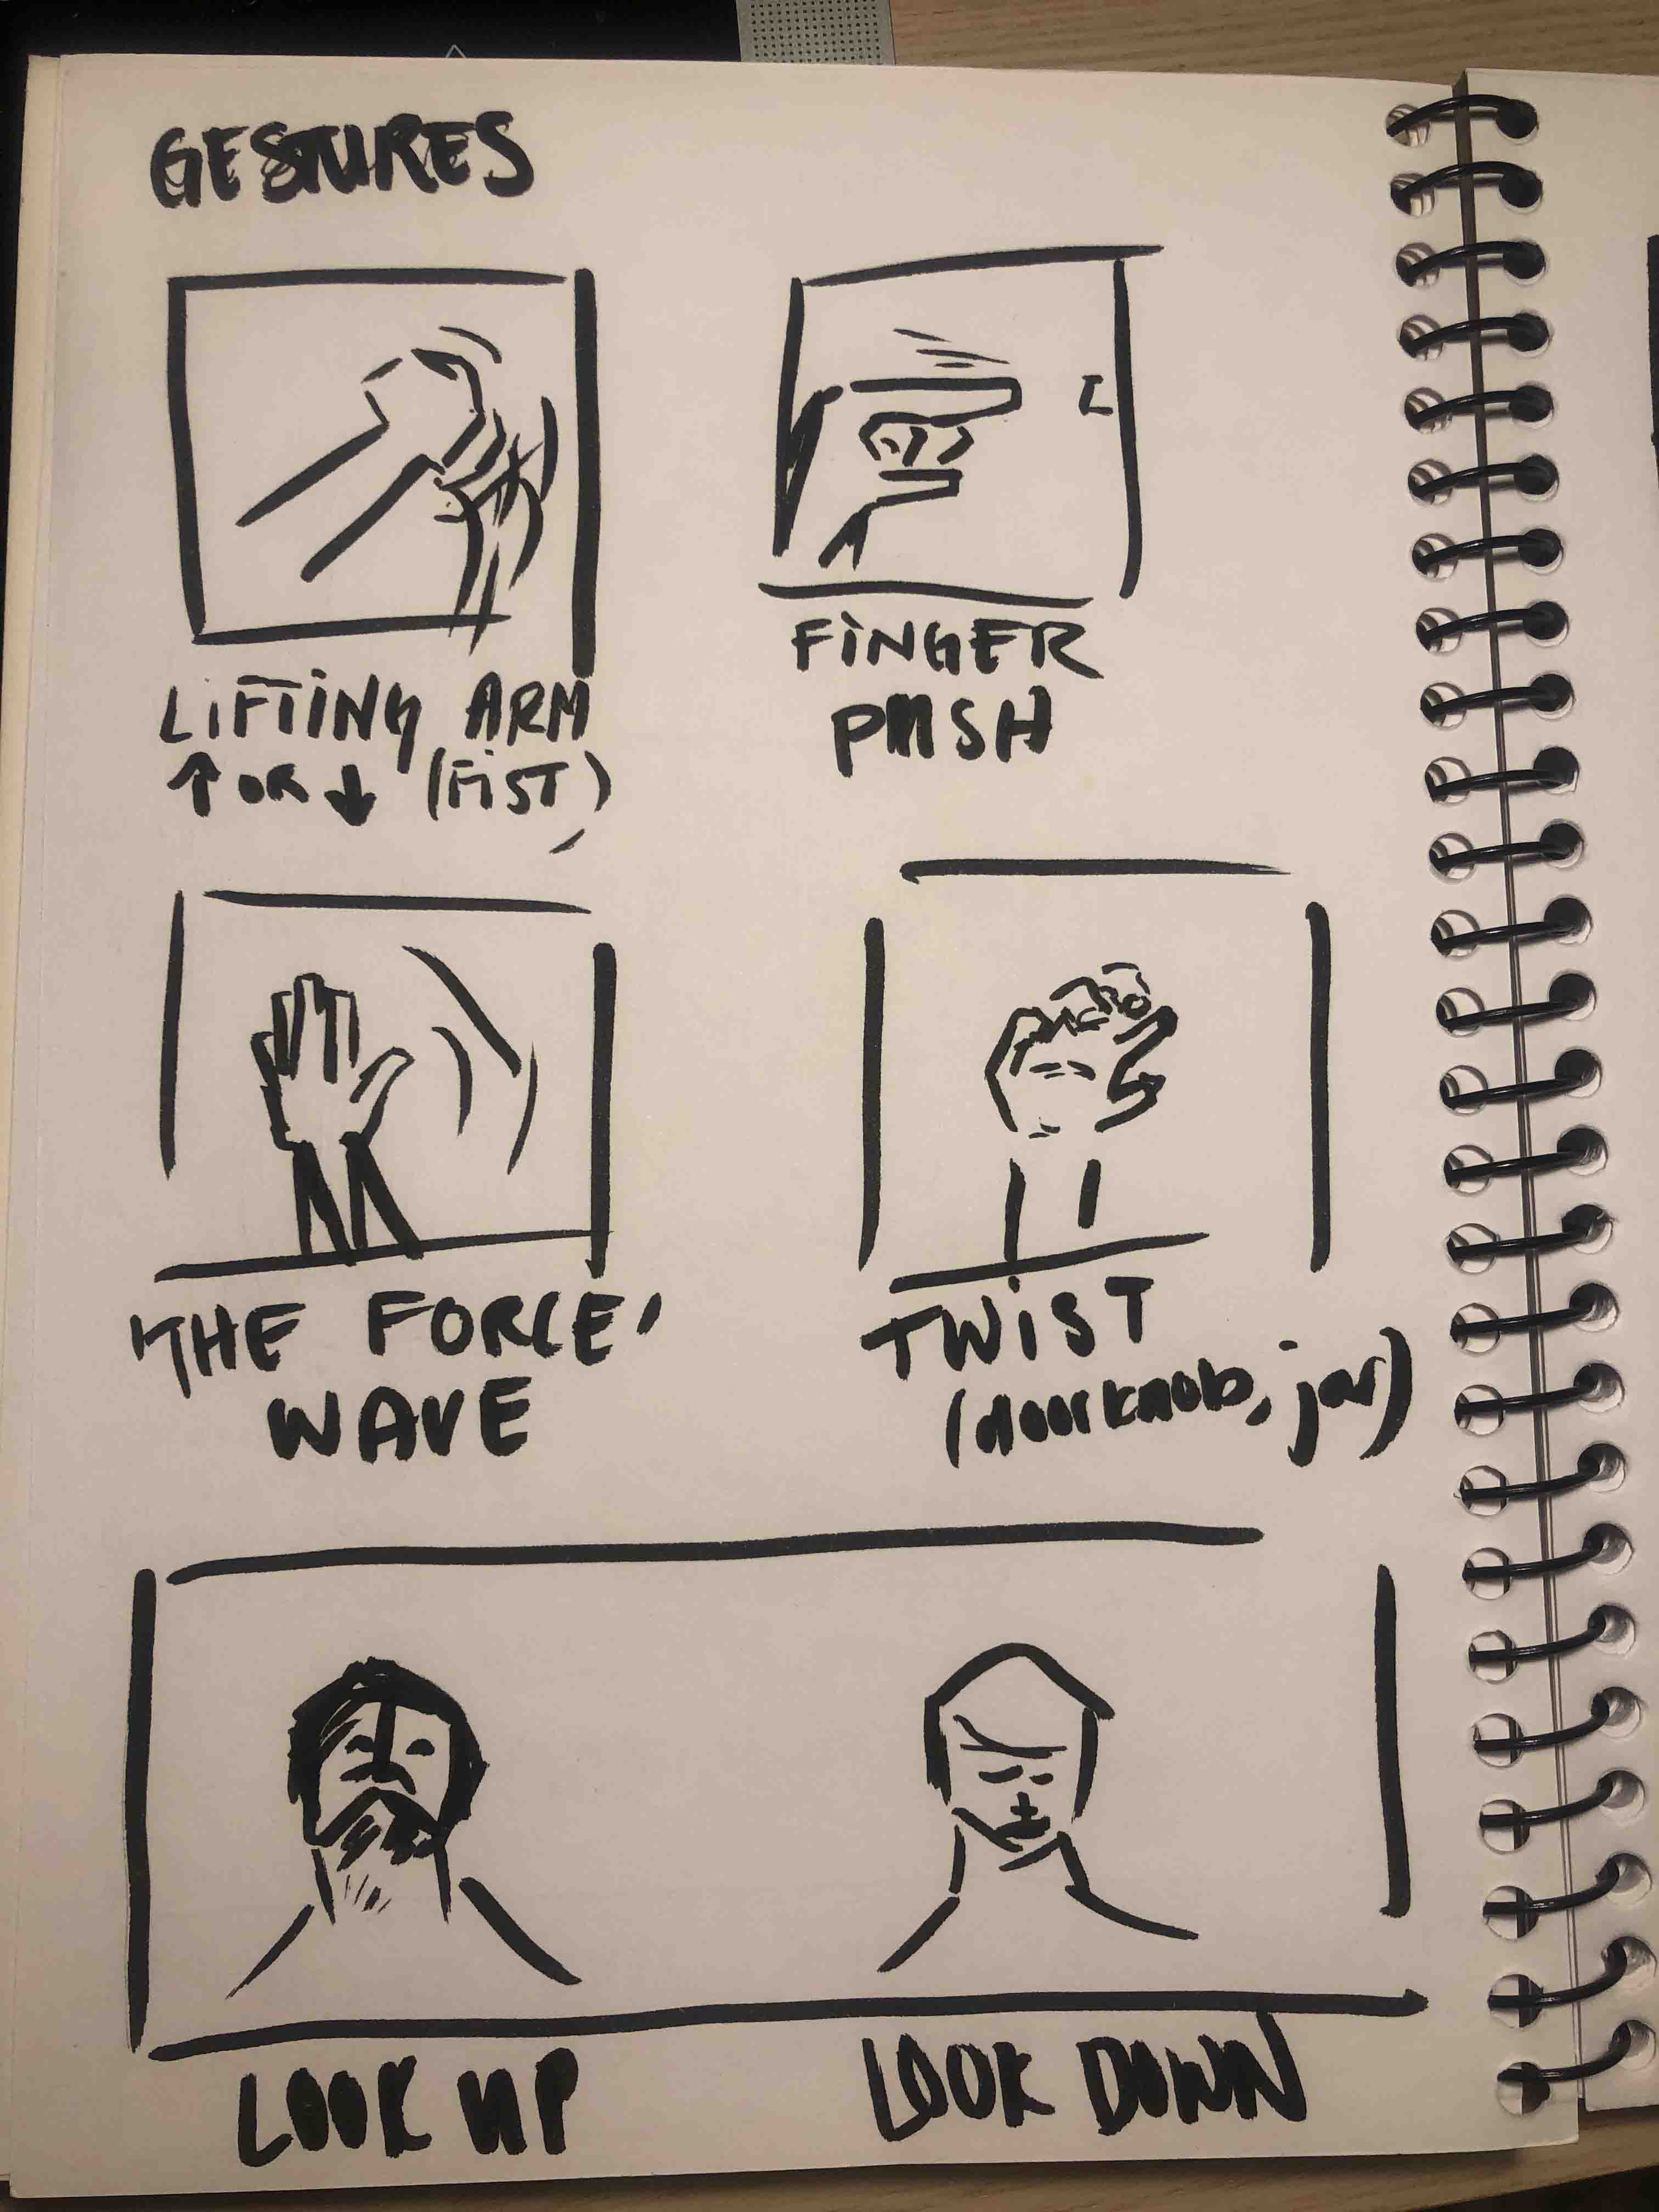 GESTURES
LiFTiNG ARM
↑ OR ↓ (FiST)
FiNGER
PUSH
'THE FORCE'
WAVE
TWiST
(doorknob, jar)
LOOK UP
LOOK DOWN